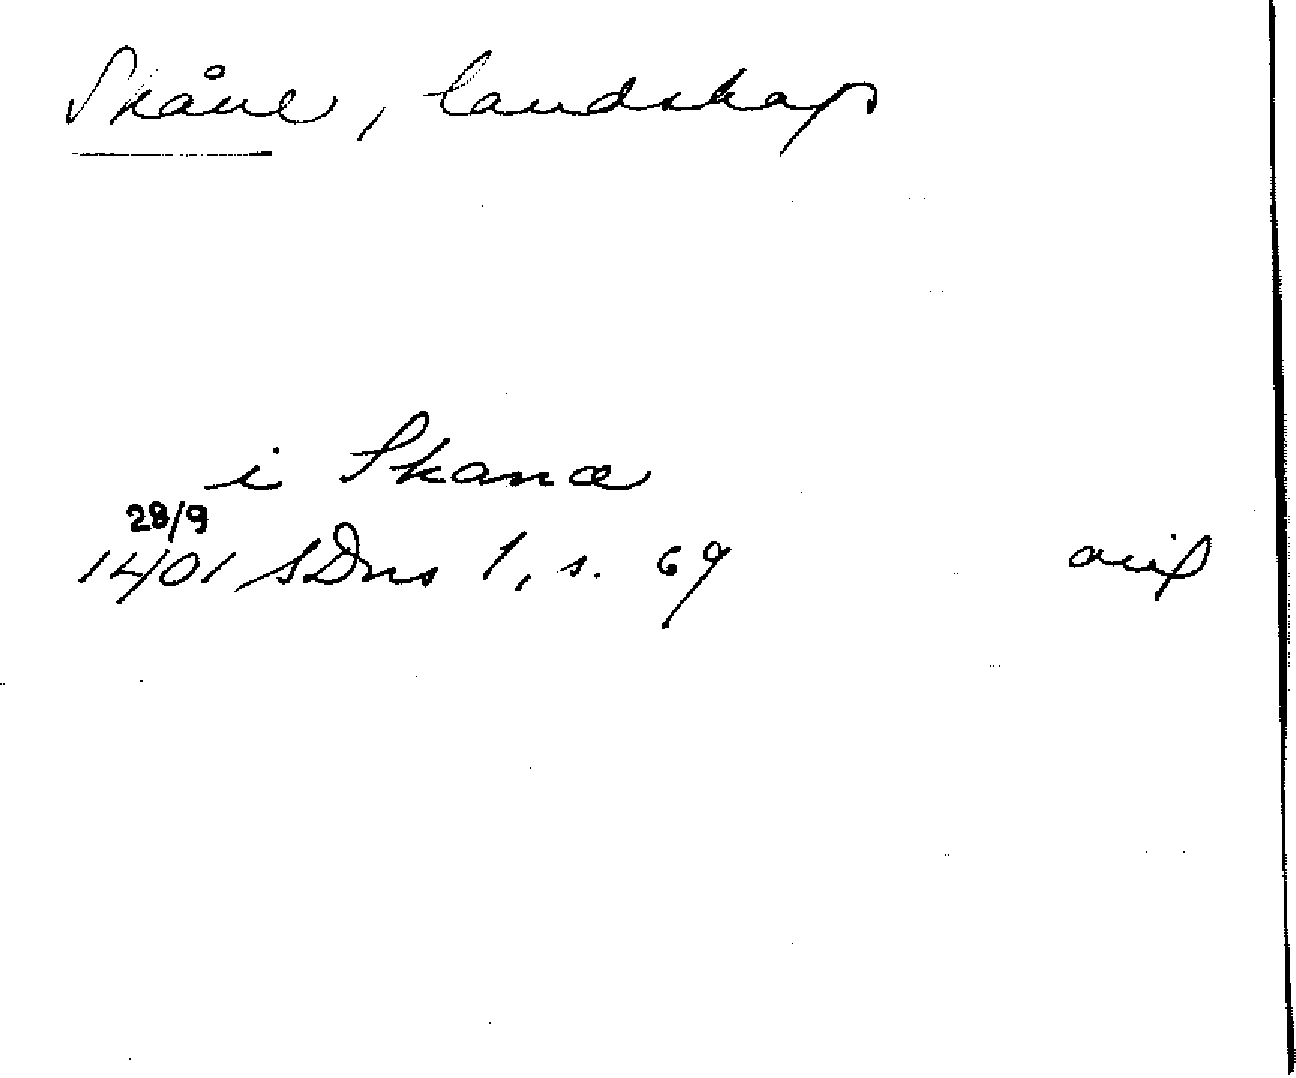 Skåne, landskap
i Skanæ
28/9
1401 SDns 1, s. 69